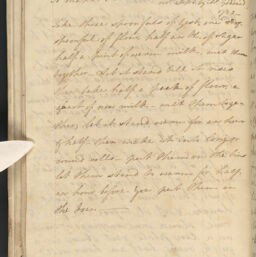 Take three spoonfuls of yeast, one
spoonful of flour, half an oz of sugar
half a pint of warm milk, mix them
together. Let it stand till it rises
then take half a peck of flour, a
quart of new milk - mix them toge
ther, let it stand warm for an hour
& half. then make it into long or
round rolls - put them on the tins
let them stand to warm for half
an hour before you put them in
the Oven.